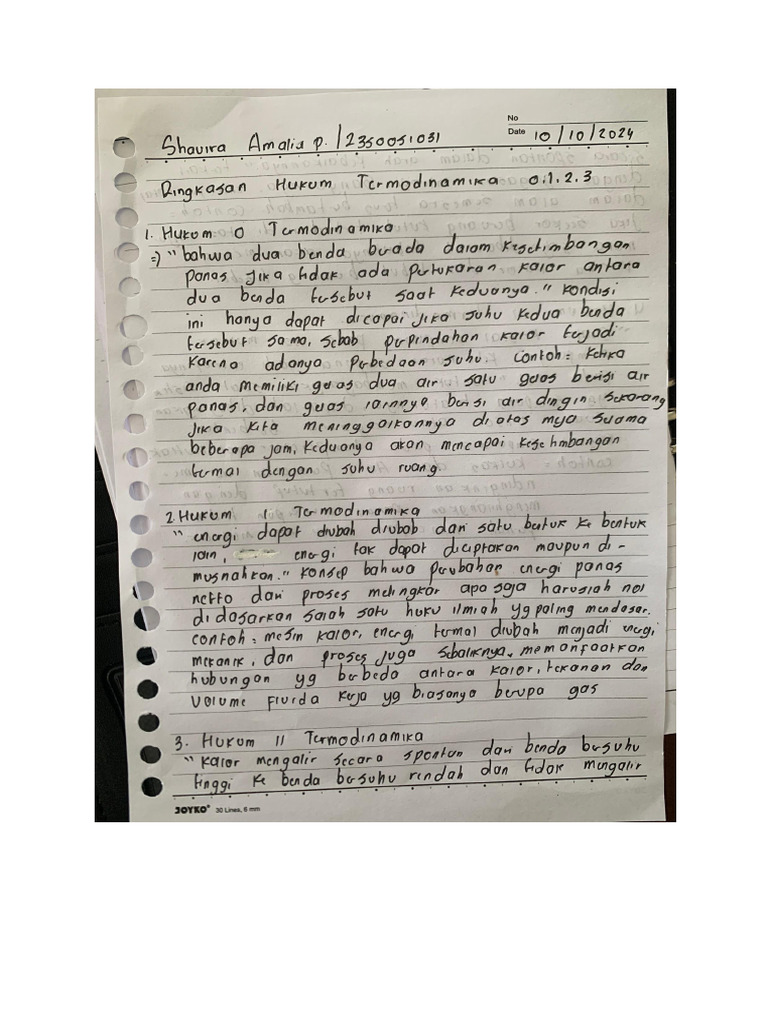 No
Shavira Amalia p. / 2350051031
Date 10/10/2024
Ringkasan Hukum Termodinamika 0.1.2.3
1. Hukum 0 Termodinamika
=) "bahwa dua benda berada dalam kesetimbangan
panas jika tidak ada pertukaran kalor antara
dua benda tersebut saat keduanya." kondisi
ini hanya dapat dicapai jika suhu kedua benda
tersebut sama, sebab perpindahan kalor terjadi
karena adanya perbedaan suhu. contoh = ketika
anda memiliki gelas dua air satu gelas berisi air
panas, dan gelas lainnya berisi air dingin sekarang
jika kita meninggalkannya di atas meja selama
beberapa jam, keduanya akan mencapai kesetimbangan
termal dengan suhu ruang.
2. Hukum 1 Termodinamika
"energi dapat diubah diubah dari satu bentuk ke bentuk
lain, energi tak dapat diciptakan maupun di-
musnahkan." konsep bahwa perubahan energi panas
netto dari proses melingkar apa saja haruslah nol
didasarkan salah satu huku ilmiah yg paling mendasar.
contoh = mesin kalor, energi termal diubah menjadi energi
mekanik, dan proses juga sebaliknya, memanfaatkan
hubungan yg berbeda antara kalor, tekanan dan
volume fluida kerja yg biasanya berupa gas
3. Hukum II Termodinamika
"kalor mengalir secara spontan dari benda bersuhu
tinggi ke benda bersuhu rendah dan tidak mengalir
JOYKO 30 Lines, 6 mm